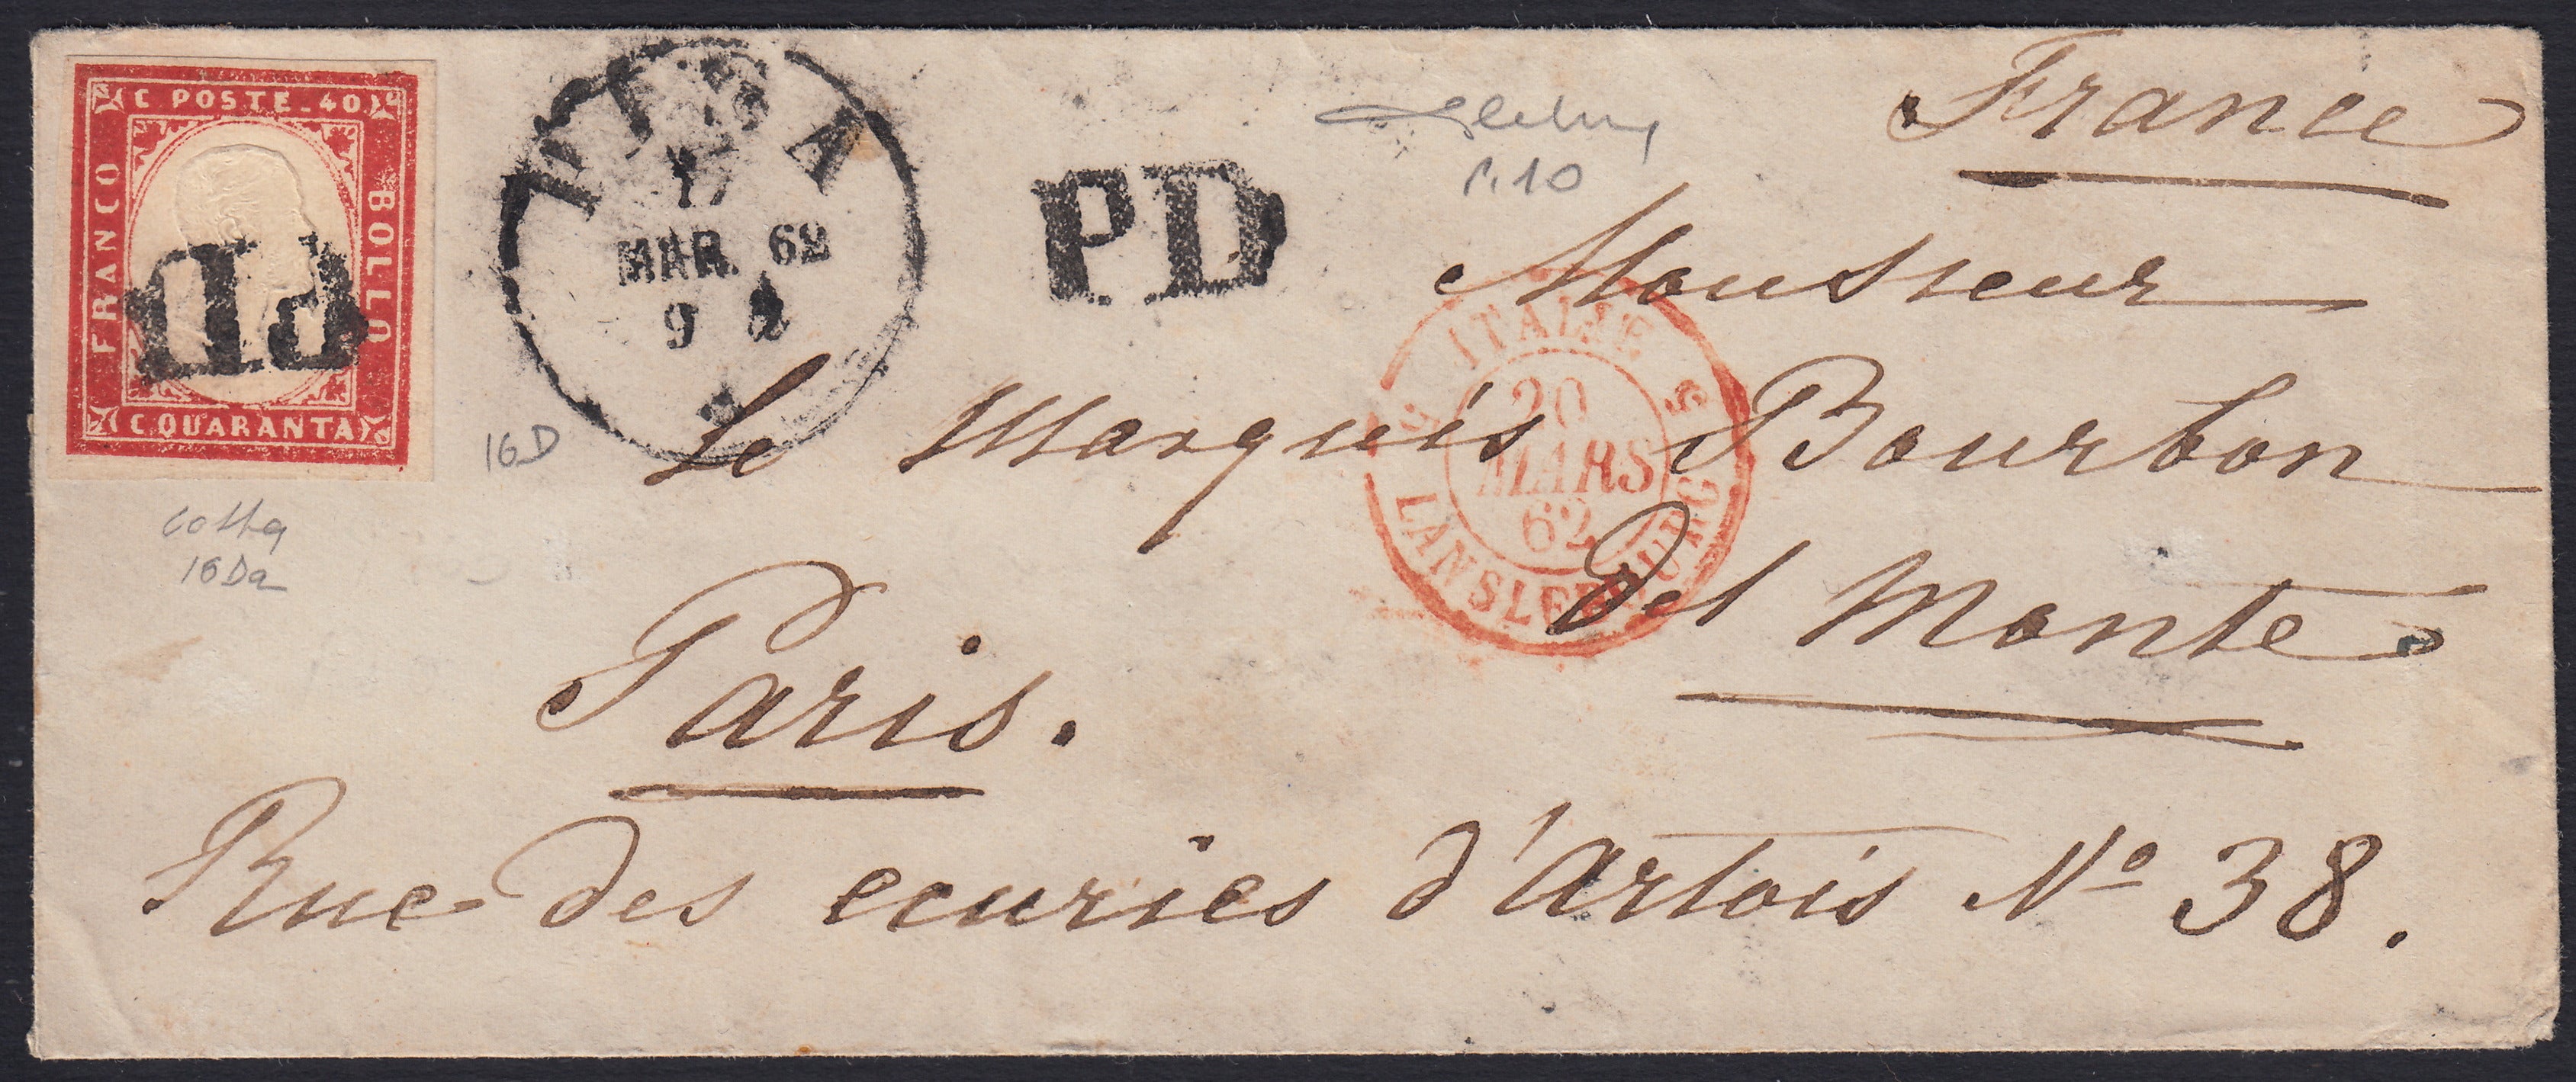 C POSTE 40
FRANCO
BOLLO
C QUARANTA
PD
PISA
17
MAR. 62
9
PD
P.10
France
Monsieur
ITALIE
20
MARS
62
LANSLEBOURG
Le Marquis Bourbon
del Monte
16D
16Da
Paris.
Rue des ecuries d'Artois Nº 38.